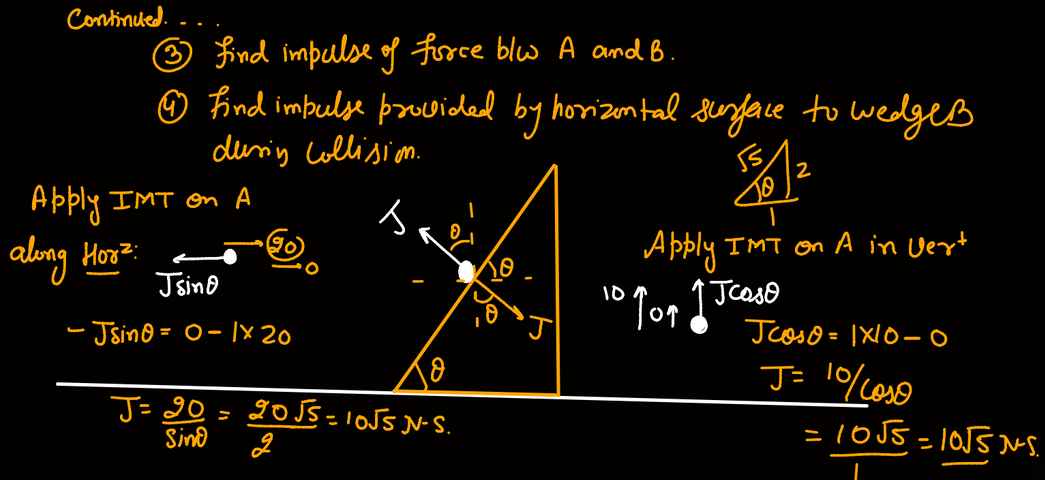 Continued. . . .
③ find impulse of force b/w A and B.
④ find impulse provided by horizontal surface to wedge B
during collision.
√5 2
θ
1
Apply IMT on A
along Horz:
20
0
Jsinθ
- Jsinθ = 0 - 1 x 20
J = 20/sinθ = 20√5/2 = 10√5 N-S.
J
θ
θ
θ
J
θ
Apply IMT on A in Vert
10 0 Jcosθ
Jcosθ = 1x10 - 0
J = 10/cosθ
= 10√5/1 = 10√5 N-S.